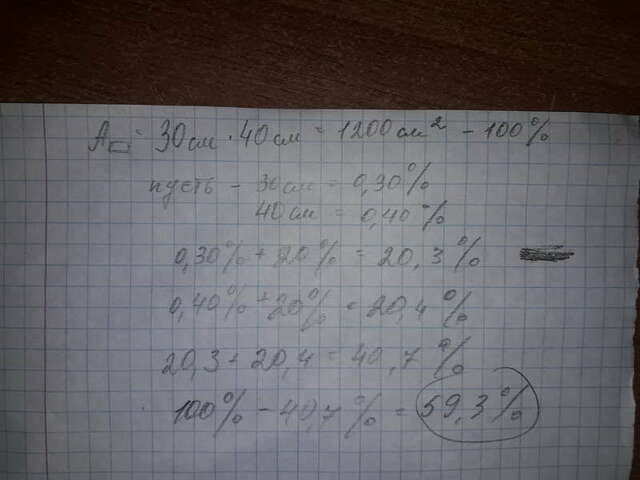 A▭ = 30см · 40см = 1200см² - 100%
пусть - 30см = 0,30%
40см = 0,40%
0,30% + 20% = 20,3%
0,40% + 20% = 20,4%
20,3 + 20,4 = 40,7%
100% - 40,7% = 59,3%